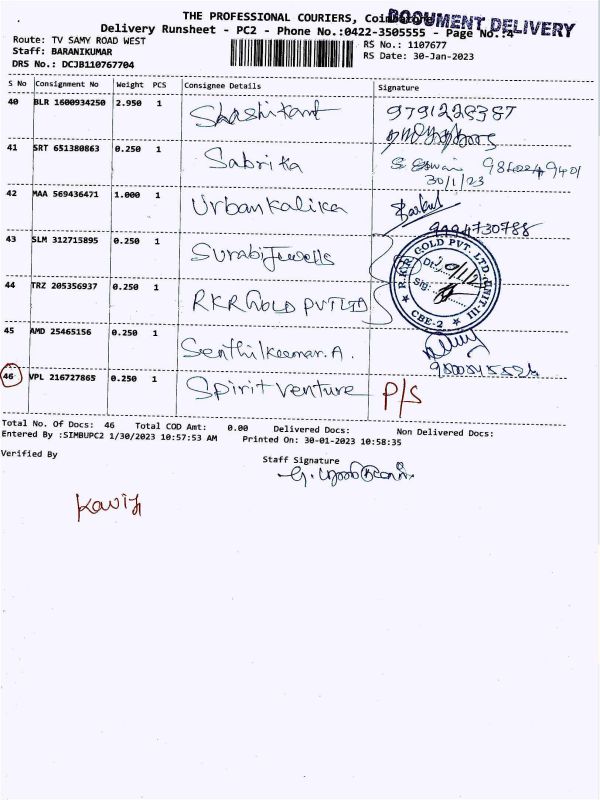 THE PROFESSIONAL COURIERS, Coimbatore
DOCUMENT DELIVERY
Delivery Runsheet - PC2 - Phone No.:0422-3505555 - Page No.:4
Route: TV SAMY ROAD WEST
RS No.: 1107677
Staff: BARANIKUMAR
RS Date: 30-Jan-2023
DRS No.: DCJB110767704
S No Consignment No Weight PCS Consignee Details Signature
40 BLR 1600934250 2.950 1 Shashikant
41 SRT 651380863 0.250 1 Sabrika
30/1/23
42 MAA 569436471 1.000 1 Urbankalika
9994730788
43 SLM 312715895 0.250 1 Surabi Jewells
44 TRZ 205356937 0.250 1 RKR GOLD PVT LTD
R.K.R. GOLD PVT. LTD. UNIT-III
Dt:
Sig:
★ CBE-2 ★
45 AMD 25465156 0.250 1 Senthilkumar. A.
46 VPL 216727865 0.250 1 Spirit venture P/S
Total No. Of Docs: 46 Total COD Amt: 0.00 Delivered Docs: Non Delivered Docs:
Entered By :SIMBUPC2 1/30/2023 10:57:53 AM Printed On: 30-01-2023 10:58:35
Verified By
Staff Signature